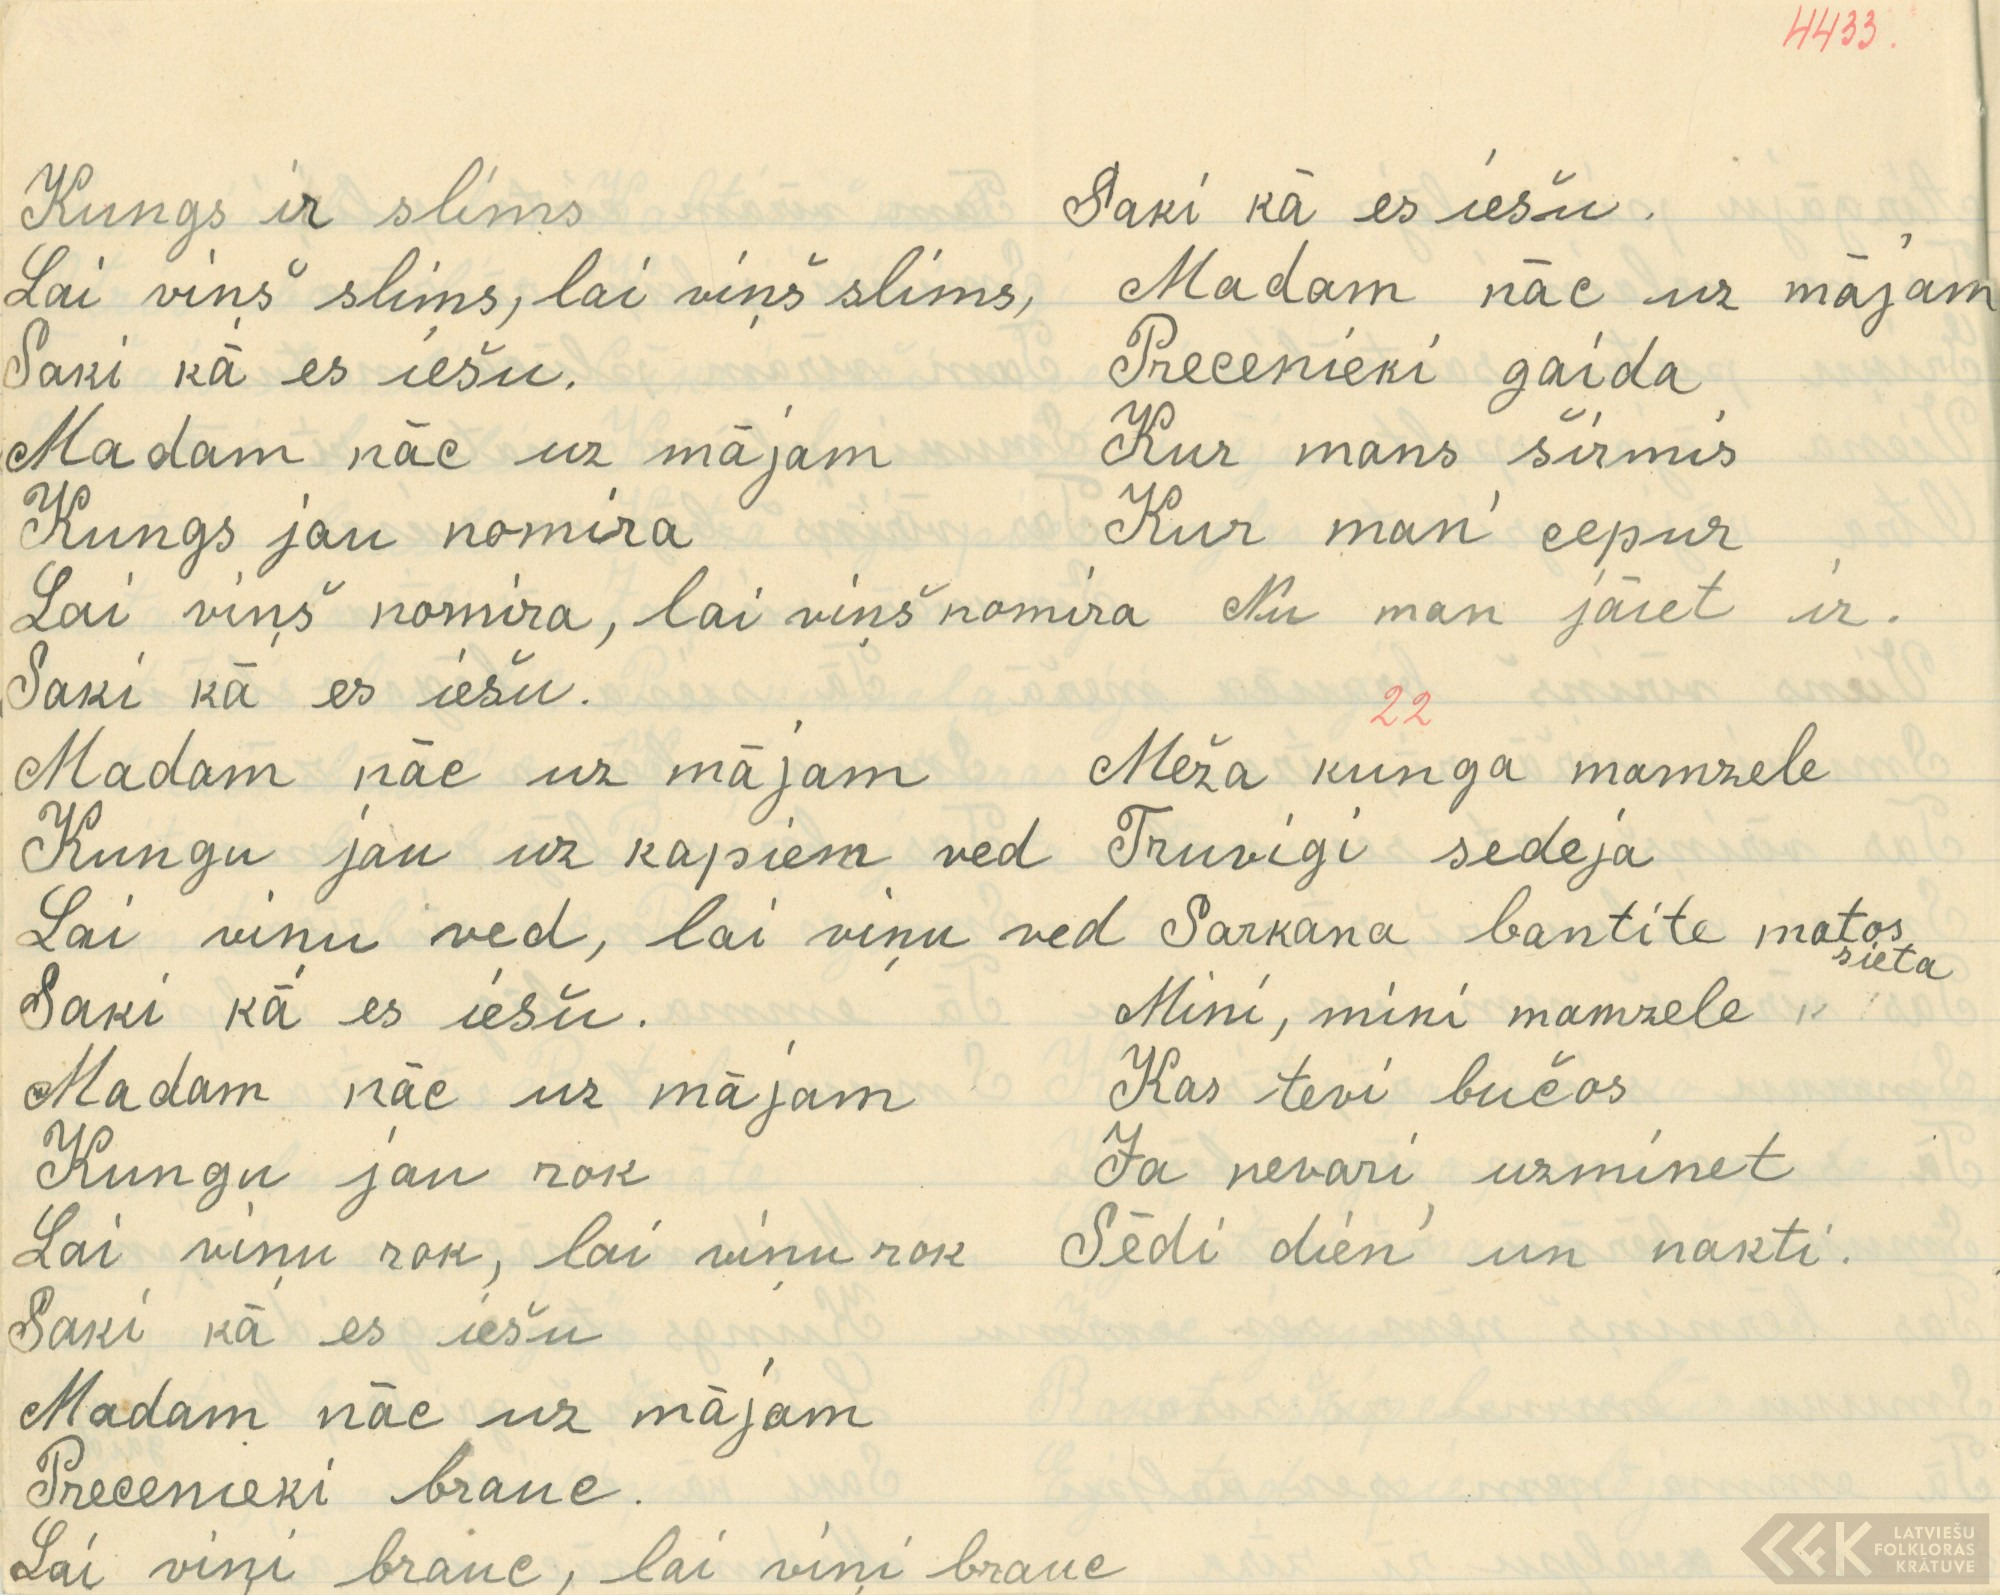 4433.
Kungs ir slims
Lai viņš slims, lai viņš slims,
Saki kā es iešu.
Madam nāc uz mājam
Kungs jau nomira
Lai viņš nomira, lai viņš nomira
Saki kā es iešu.
Madam nāc uz mājam
Kungu jau uz kapiem ved
Lai viņu ved, lai viņu ved
Saki kā es iešu.
Madam nāc uz mājam
Kungu jau rok
Lai viņu rok, lai viņu rok
Saki kā es iešu
Madam nāc uz mājam
Precenieki brauc.
Lai viņi brauc, lai viņi brauc
Saki kā es iešu.
Madam nāc uz mājam
Precenieki gaida
Kur mans širmis
Kur man' cepur
Nu man jāiet ir.
22
Meža kunga mamzele
Truvigi sedeja
Sarkana bantite matos
sieta
Mini, mini mamzele
Kas tevi bučos
Ja nevari uzminet
Sēdi dien' un nakti.
LATVIEŠU
FOLKLORAS
KRĀTUVE